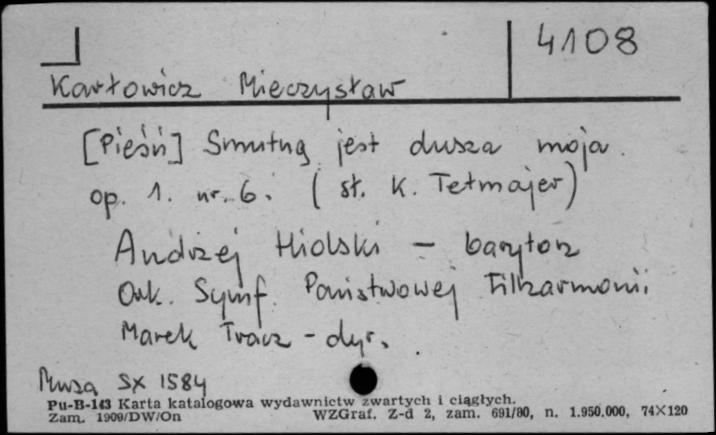 4108
Karłowicz Mieczysław
[Pieśń] Smutną jest dusza moja.
op. 1. nr. 6. (sł. K. Tetmajer)
Andrzej Hiolski - baryton
Ork. Symf. Państwowej Filharmonii
Marek Tracz - dyr.
Muza SX 1584
Pu-B-143 Karta katalogowa wydawnictw zwartych i ciągłych.
Zam. 1909/DW/On WZGraf. Z-d 2, zam. 691/80, n. 1.950.000, 74×120